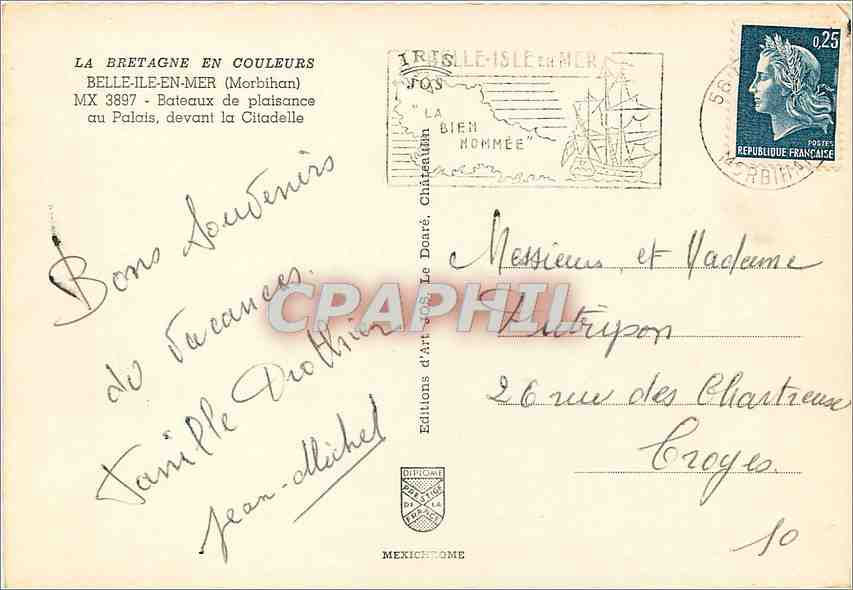 LA BRETAGNE EN COULEURS
BELLE-ILE-EN-MER (Morbihan)
MX 3897 - Bateaux de plaisance
au Palais, devant la Citadelle
IRIS
JOS
BELLE-ISLE EN MER
"LA
BIEN
NOMMÉE"
0,25
POSTES
REPUBLIQUE FRANÇAISE
56
MORBIHAN
Bons Souvenirs
de Vacances.
Famille
Jean-Michel
Editions d'Art JOS, Le Doaré, Châteaulin
CPAPHIL
Messieurs, et Madame
26 rue des Chartreuse
Troyes.
10
DIPLOME
PRESTIGE
DE LA
FRANCE
MEXICHROME